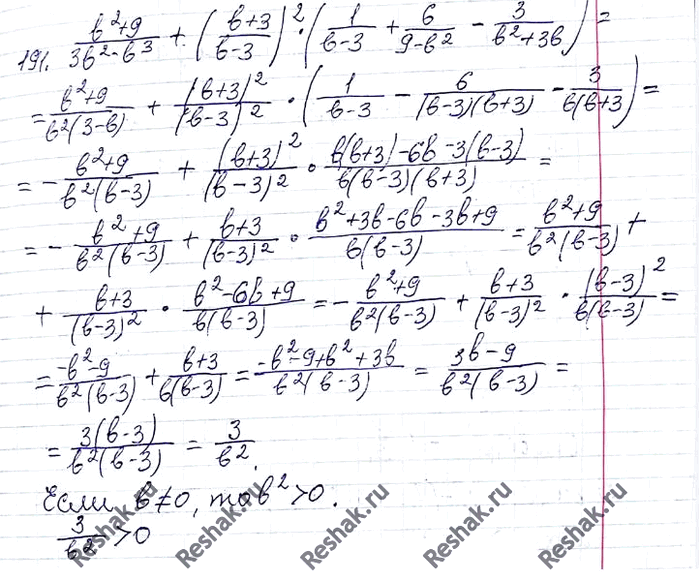 191. (в²+9)/(3в²-в³) + ((в+3)/(в-3))² · (1/(в-3) + 6/(9-в²) - 3/(в²+3в)) =
= (в²+9)/(в²(3-в)) + (в+3)²/(в-3)² · (1/(в-3) - 6/((в-3)(в+3)) - 3/(в(в+3))) =
= - (в²+9)/(в²(в-3)) + (в+3)²/(в-3)² · (в(в+3)-6в-3(в-3))/(в(в-3)(в+3)) =
= - (в²+9)/(в²(в-3)) + (в+3)/(в-3)² · (в²+3в-6в-3в+9)/(в(в-3)) = (в²+9)/(в²(в-3)) +
+ (в+3)/(в-3)² · (в²-6в+9)/(в(в-3)) = - (в²+9)/(в²(в-3)) + (в+3)/(в-3)² · (в-3)²/(в(в-3)) =
= (-в²-9)/(в²(в-3)) + (в+3)/(в(в-3)) = (-в²-9+в²+3в)/(в²(в-3)) = (3в-9)/(в²(в-3)) =
= 3(в-3)/(в²(в-3)) = 3/в².
Если в≠0, то в²>0.
3/в² >0
Reshak.ru Reshak.ru Reshak.ru Reshak.ru Reshak.ru